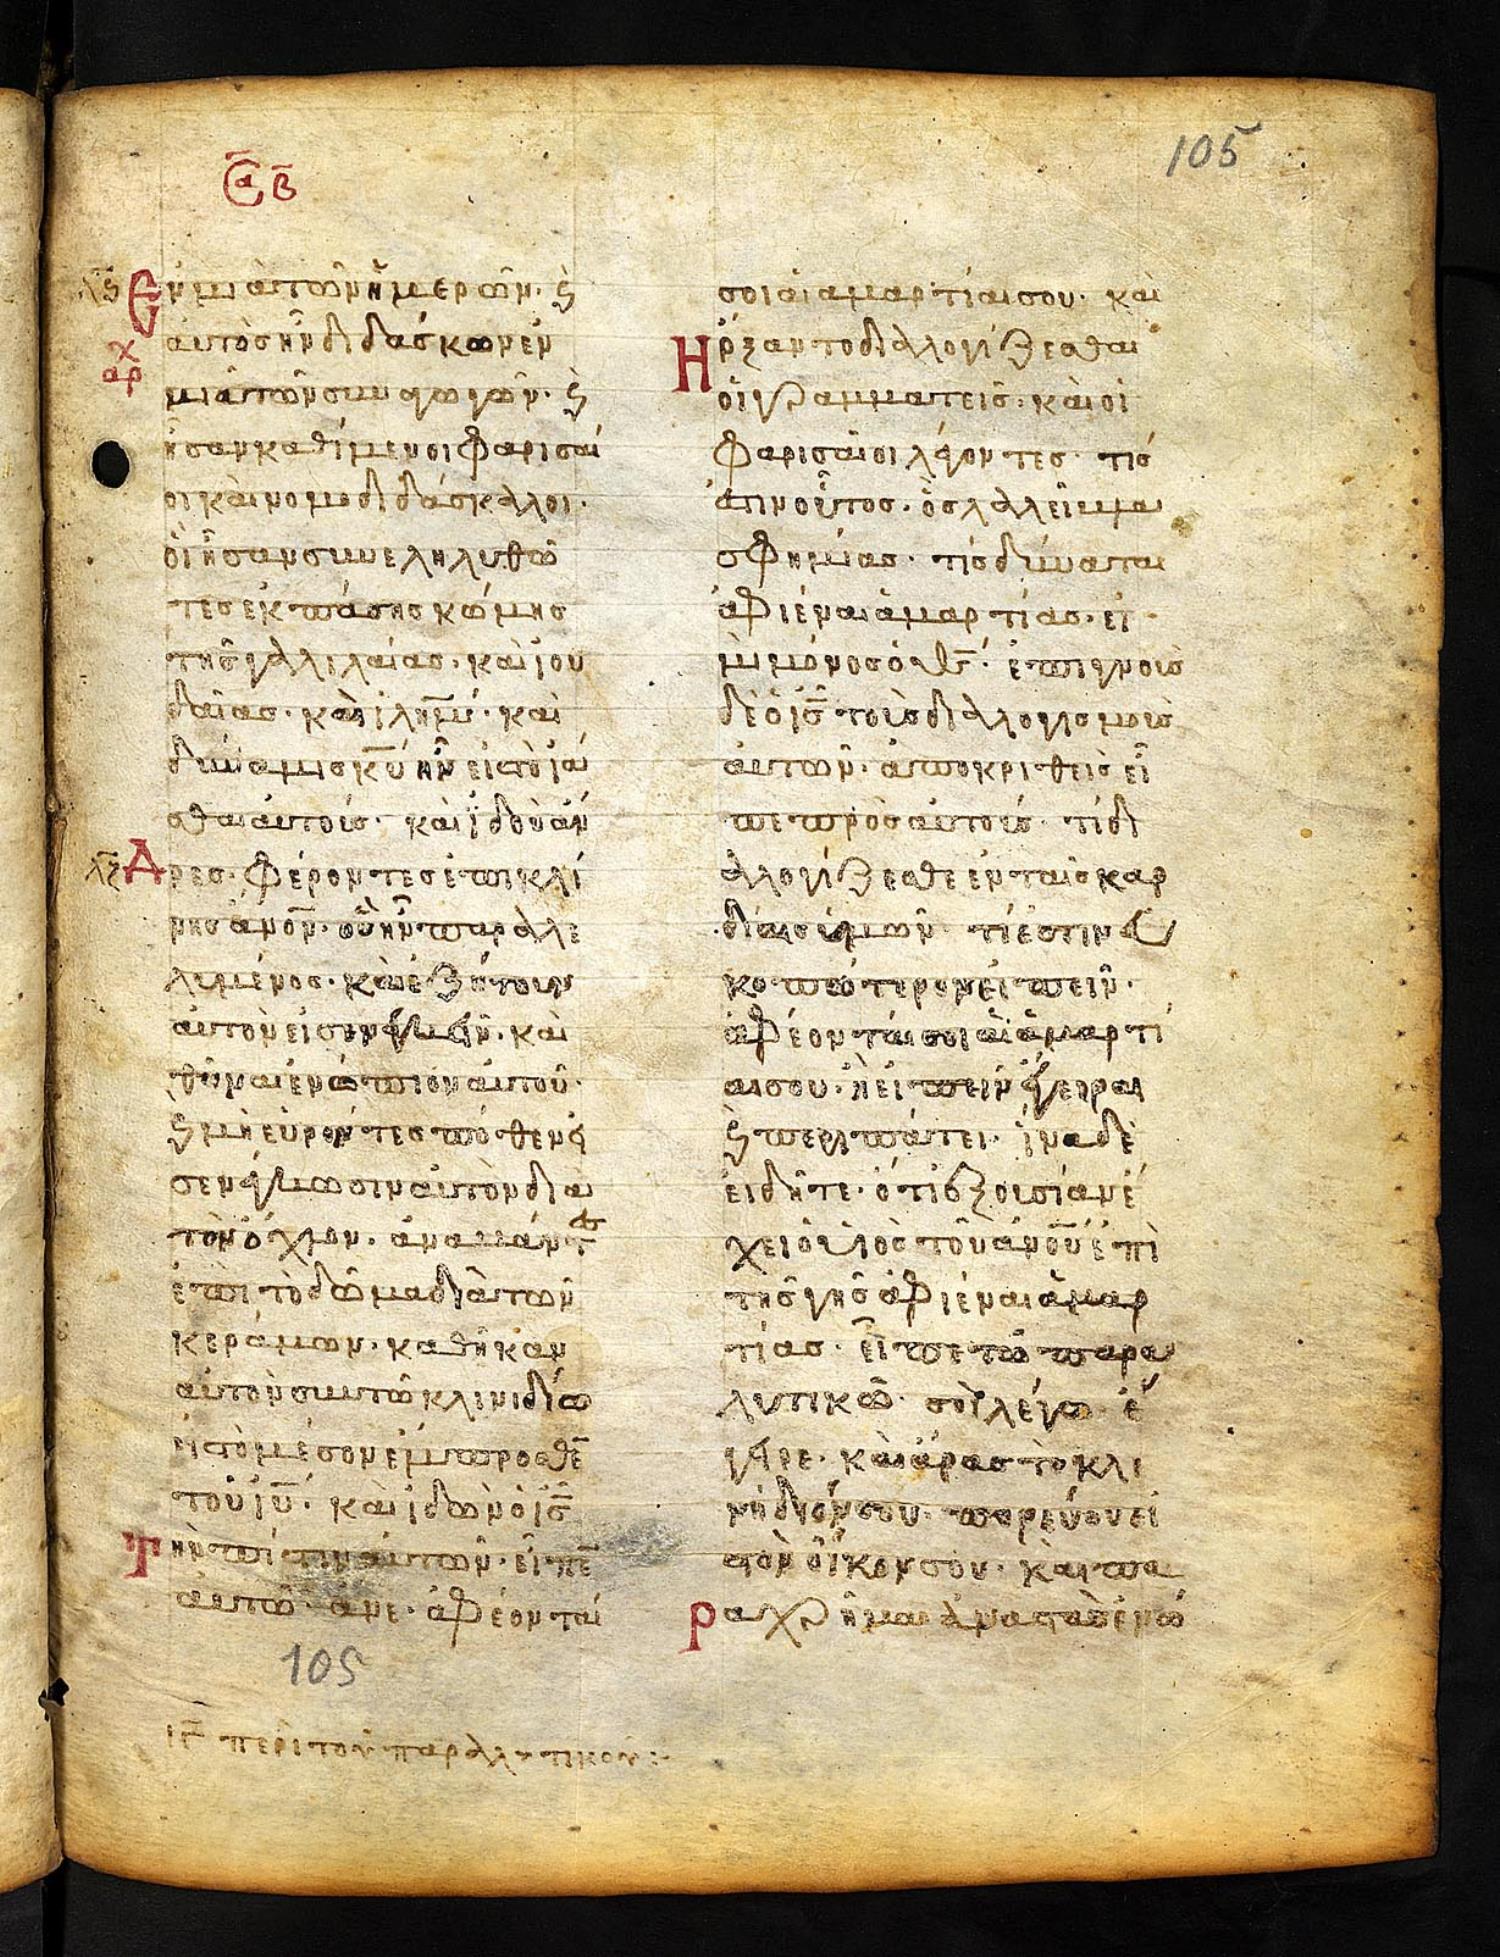 105
ϹΑ Β
λϛ Ἐν μιὰ τῶν ἡμερῶν· ϗ
αὐτὸς ἦν διδάσκων ἐν
χ
αρ
μιᾶ τῶν συναγωγῶν· ϗ
ἦσαν καθίμενοι φαρισαί
οι καὶ νομοδιδάσκαλοι·
οἱ ἦσαν συνεληλυθό
τες ἐκ πάσης κώμης
τῆς γαλιλαίας· καὶ ἰου
δαίας· καὶ ἰλημ̅· καὶ
δύναμις κ̅υ ἦν εἰς τὸ ἰᾶ
σθαι αὐτούς· καὶ ἰδοὺ ἄν
λζ Δρες· φέροντες ἐπὶ κλί
νης ἄνο̅ν· ὃς ἦν παραλε
λυμένος· καὶ ἐζήτουν
αὐτὸν εἰσενεγκεῖν· καὶ
θῆναι ἐνώπιον αὐτοῦ·
ϗ μὴ εὑρόντες πόθεν εἰ
σενέγκωσιν αὐτὸν διὰ
τὸν ὄχλον· ἀναβάντ
ἐπὶ τὸ δῶμα διὰ τῶν
κεράμων· καθῆκαν
αὐτὸν σὺν τῶ κλινιδίω
εἰς τὸ μέσον ἔμπροσθε̅
τοῦ ι̅υ· καὶ ἰδὼν ὁ ι̅ς
Τὴν πίστιν αὐτῶν· εἶπε̅
αὐτῶ· ἄνε· ἀφέονταί
σοι αἱ αμαρτίαι σου· καὶ
Ἤρξαντο διαλογίζεσθαι
οἱ γραμματεῖς· καὶ οἱ
φαρισαῖοι λέγοντες· τίς
ἐστιν οὗτος· ὃς λαλεῖ βλα
σφημίας· τίς δύναται
ἀφιέναι ἁμαρτίας· εἰ
μὴ μόνος ὁ θ̅ς· ἐπιγνοὺς
δὲ ὁ ι̅ς τοὺς διαλογισμοὺς
αὐτῶν· ἀποκριθεὶς εἶ
πε πρὸς αὐτούς· τί δι
αλογίζεσθε ἐν ταῖς καρ
δίαις ὑμῶν· τί ἐστιν εὐ
κοπώτερον εἰπεῖν·
ἀφέονταί σοι αἱ ἁμαρτί
αι σου· ἢ εἰπεῖν ἔγειραι
ϗ περιπάτει· ἵνα δὲ
εἰδῆτε· ὅτι ἐξουσίαν ἔ
χει ὁ υἱὸς τοῦ ἀνο̅υ ἐπὶ
τῆς γῆς ἀφιέναι ἁμαρ
τίας· εἶπε τῶ παρα
λυτικῶ· σοὶ λέγω ἔ
γειρε· καὶ ἄρας τὸ κλι
νήδιόν σου· πορεύου εἰ
ς τὸν οἶκον σου· καὶ πα
Ραχρῆμα ἀναστὰς ἐνώ
105
ΙΓ̅ περὶ τοῦ παραλυτικοῦ :